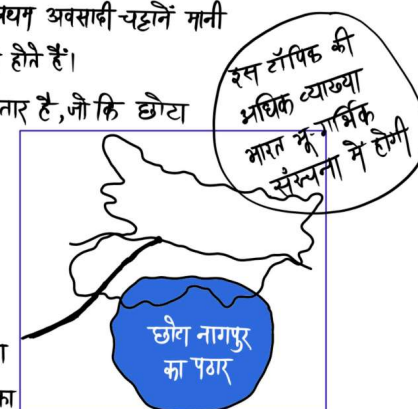 प्रथम अवसादी चट्टानें मानी
होते हैं।
तार है, जो कि छोटा
इस टॉपिक की
अधिक व्याख्या
भारत भू-गार्भिक
संरचना में होगी
छोटा नागपुर
का पठार